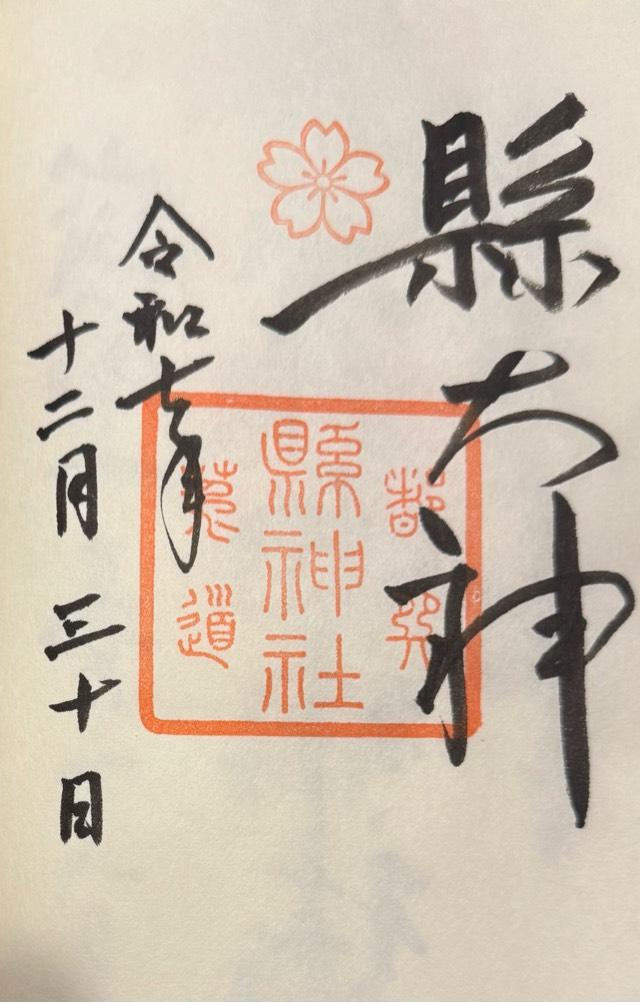 縣大神
都巽
縣神社
莵道
令和七年
十二月三十日